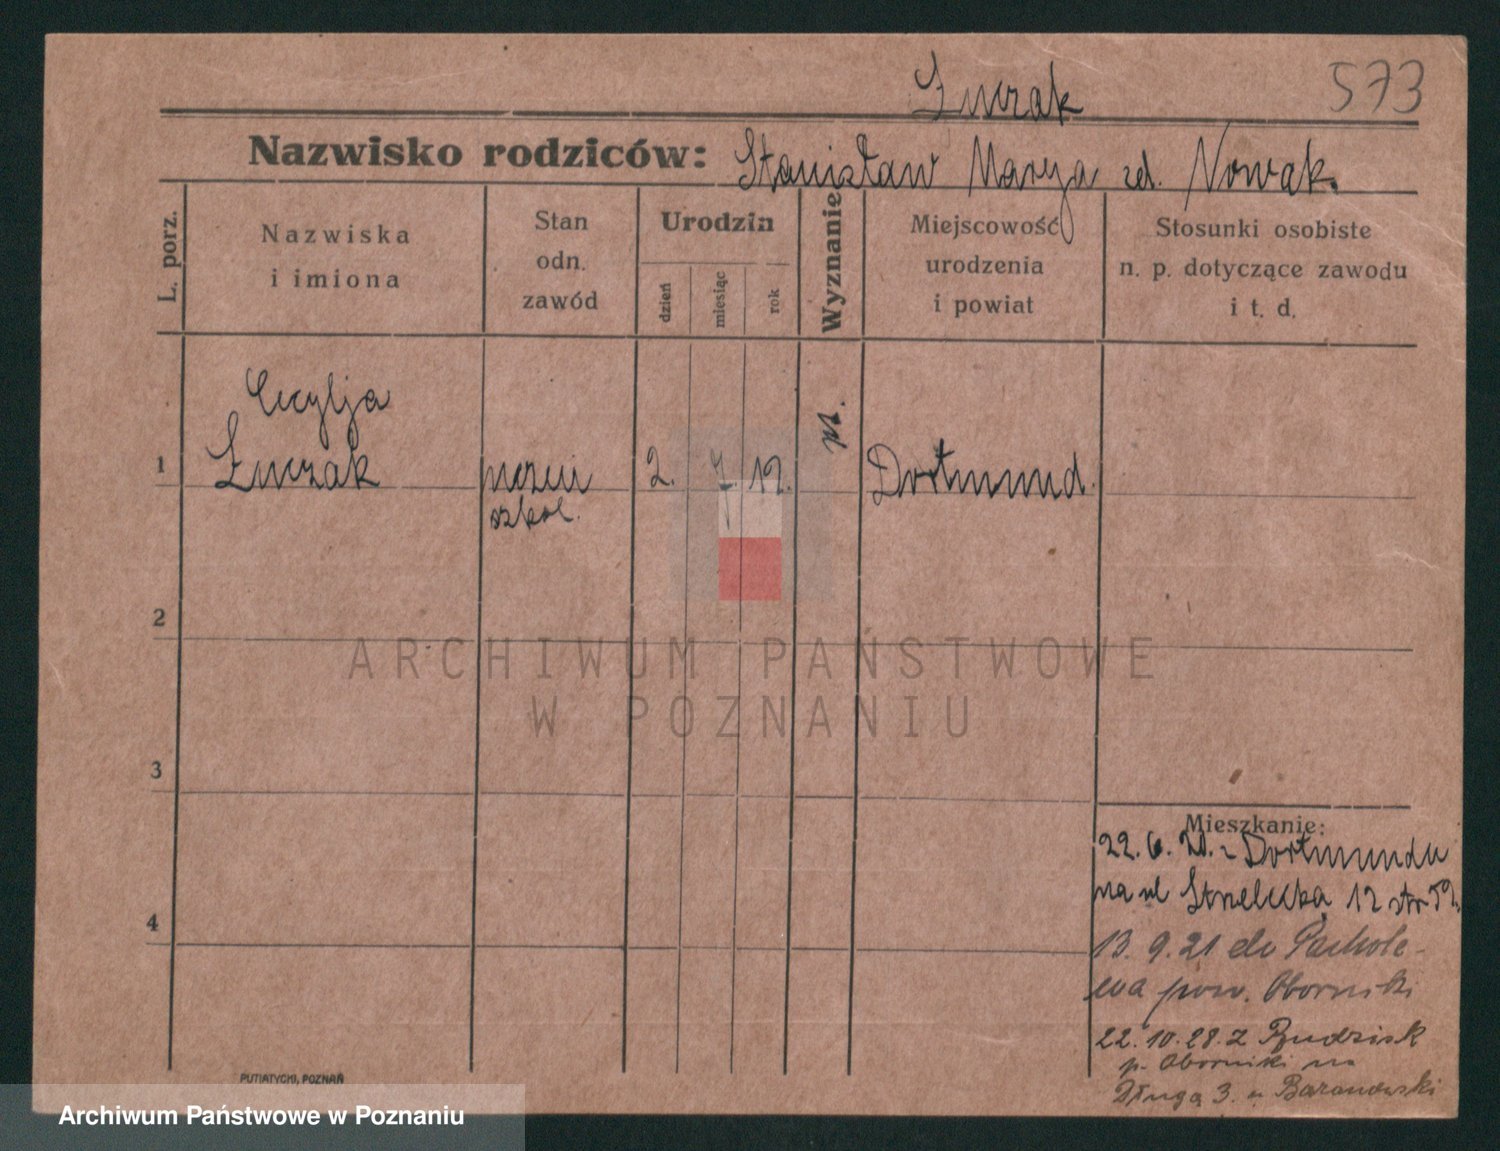 Łuczak
573
Nazwisko rodziców: Stanisław Marya zd. Nowak.
L. porz.
Nazwiska
i imiona
Stan
odn.
zawód
Urodzin
dzień
miesiąc
rok
Wyznanie
Miejscowość
urodzenia
i powiat
Stosunki osobiste
n. p. dotyczące zawodu
i t. d.
1
Cecylja
Łuczak
uczeń
szkol.
2. 7. 12.
Dortmund.
2
3
4
ARCHIWUM PAŃSTWOWE
W POZNANIU
Mieszkanie:
22. 6. 20. z Dortmundu
na ul Strzelecka 12 str
13. 9. 21 do Pachole-
wa pow. Oborniki
22. 10. 28. z Budzisk
p. Oborniki na
Długą 3. u Baranowski
PUTIATYCKI, POZNAŃ
Archiwum Państwowe w Poznaniu